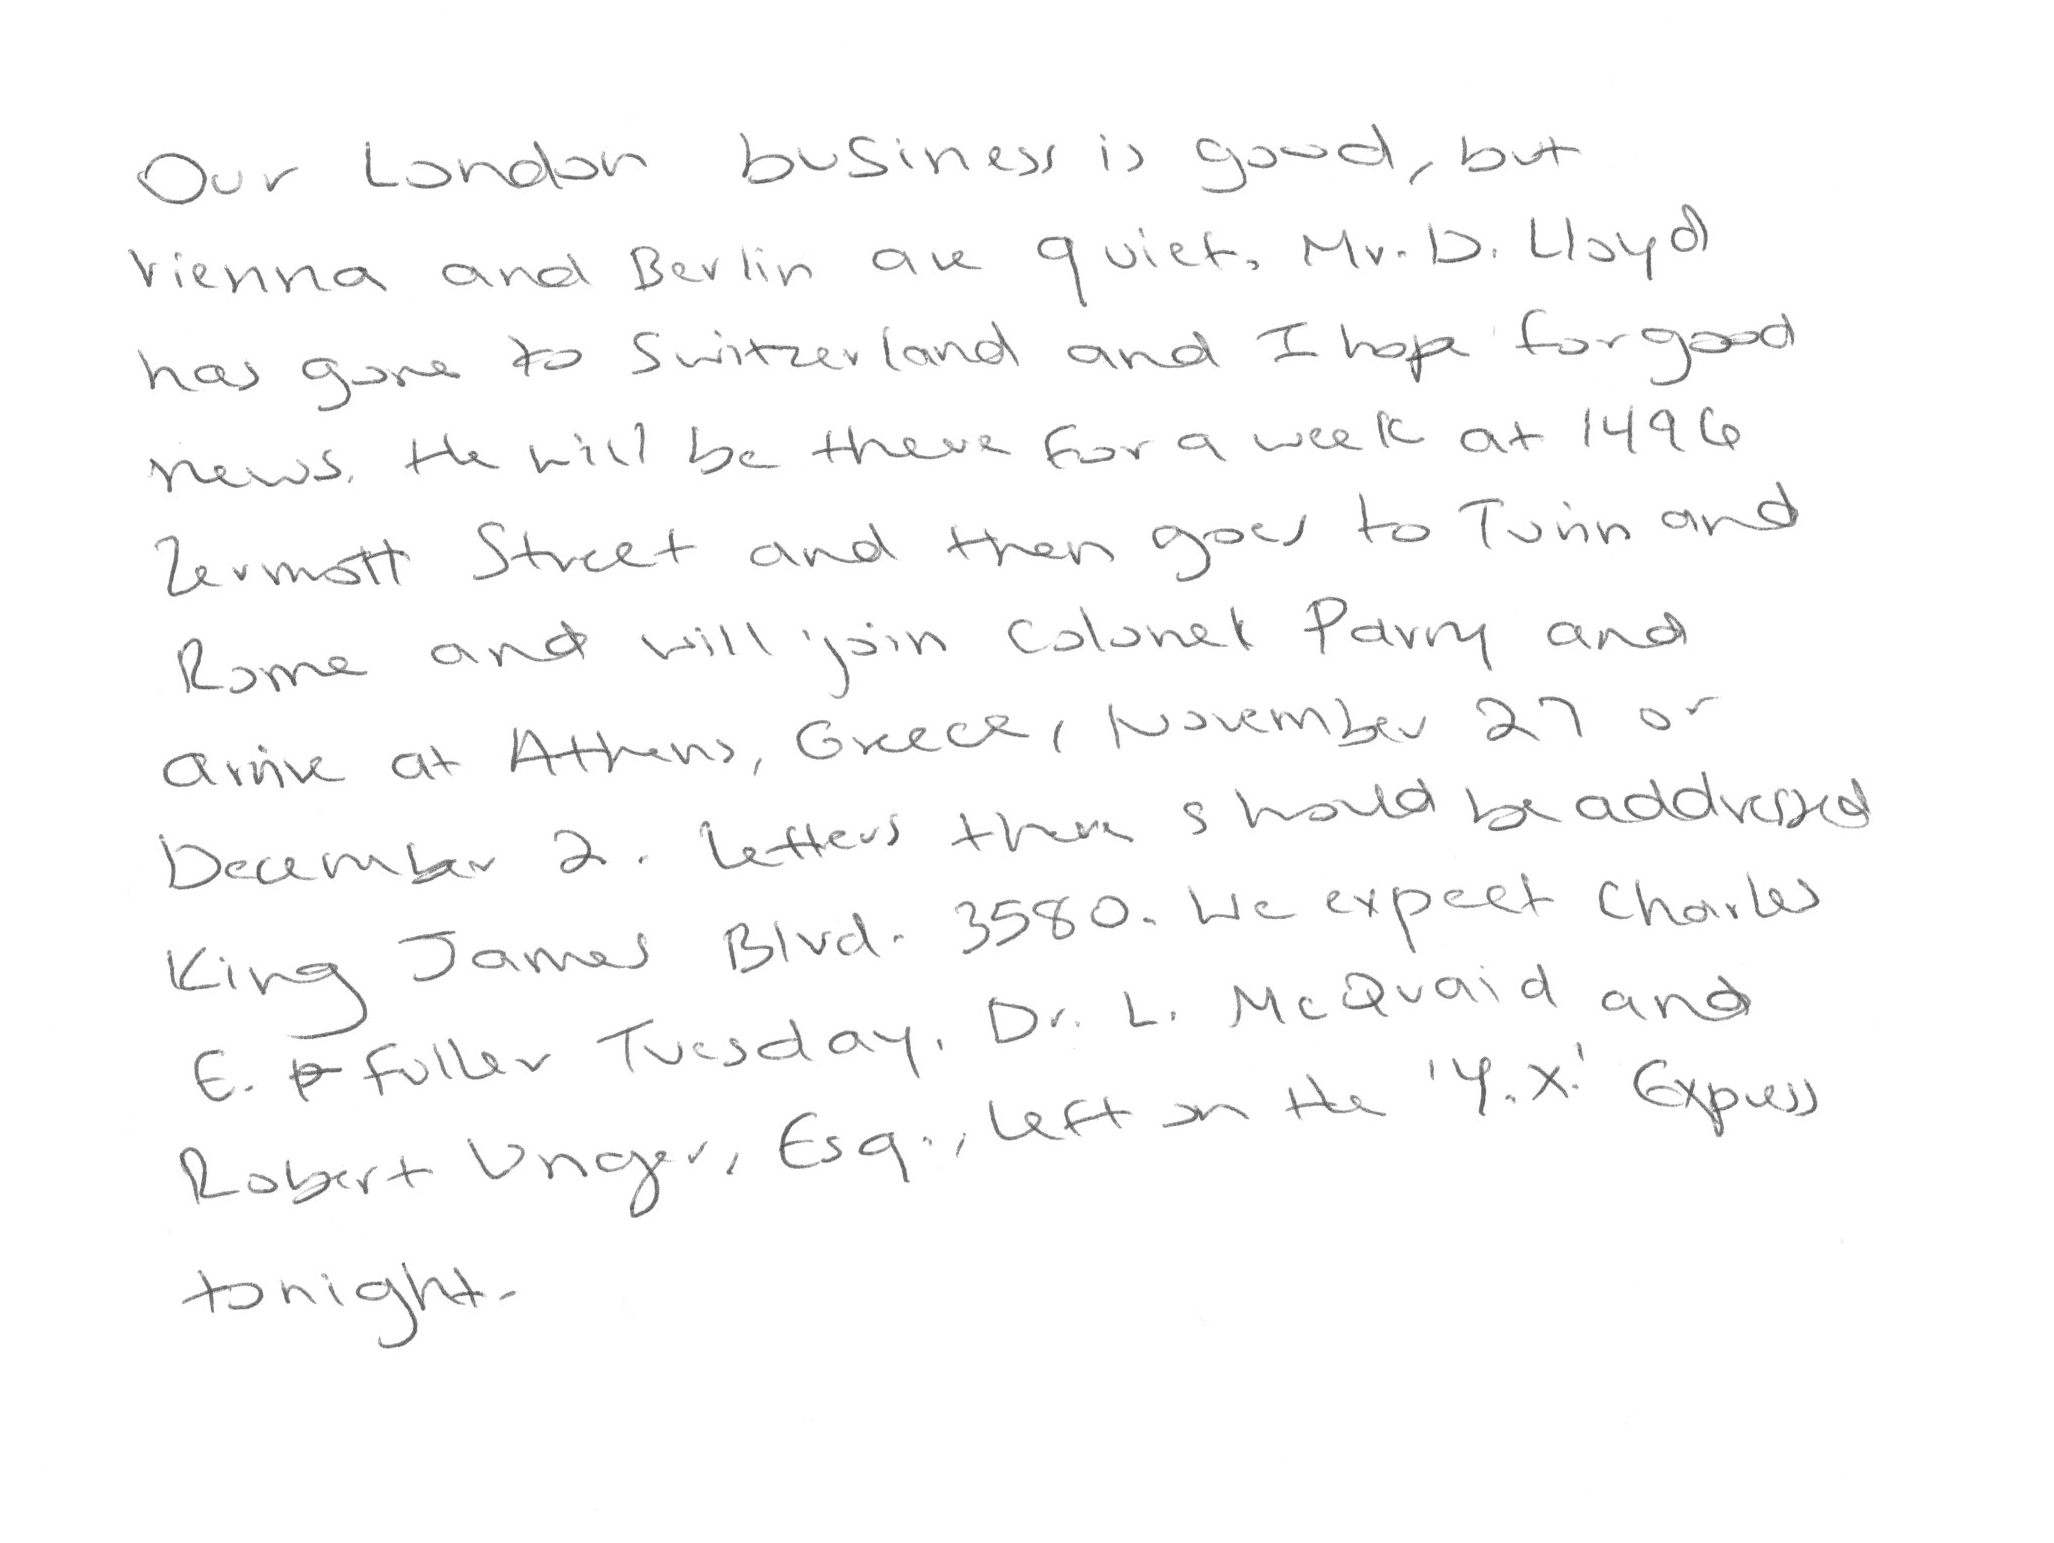 Our London business is good, but
Vienna and Berlin are quiet. Mr. D. Lloyd
has gone to Switzerland and I hope for good
news. He will be there for a week at 1496
Zermott Street and then goes to Turin and
Rome and will join Colonel Parry and
arrive at Athens, Greece, November 27 or
December 2. Letters there should be addressed
King James Blvd. 3580. We expect Charles
E. Fuller Tuesday. Dr. L. McQuaid and
Robert Unger, Esq., left on the 'Y.X.' Express
tonight.